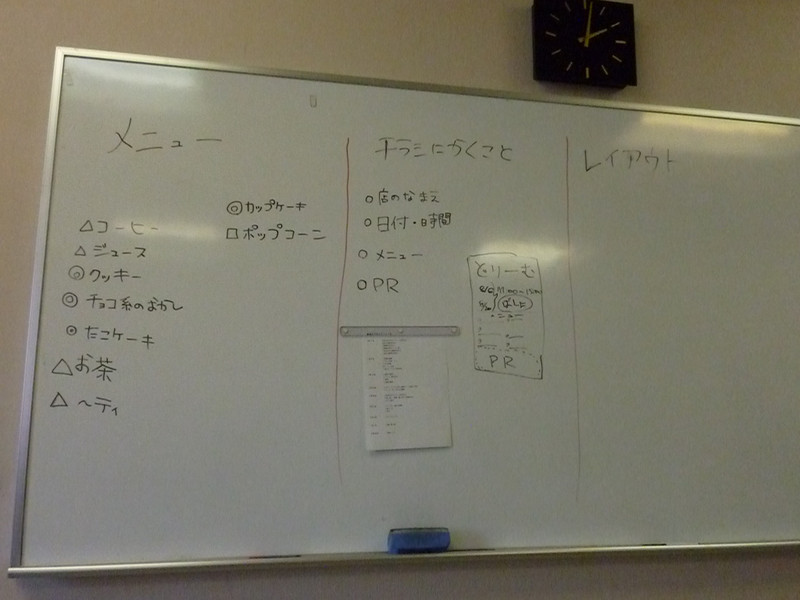 メニュー
△コーヒー
△ジュース
◎クッキー
◎チョコ系のおかし
◎たこケーキ
△お茶
△〜ティ
◎カップケーキ
□ポップコーン
チラシにかくこと
○店のなまえ
○日付・時間
○メニュー
○PR
どりーむ
メニュー
PR
レイアウト